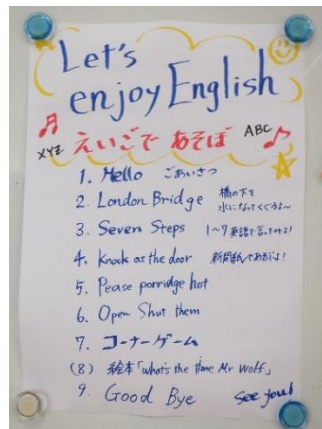 Let's
enjoy English
えいごで あそぼ
ABC
XYZ
1. Hello ごあいさつ
2. London Bridge 橋の下を
水になってくぐるよ〜
3. Seven Steps 1〜7 英語で言ってみよう!
4. Knock at the door 新聞紙であそぶよ!
5. Pease porridge hot
6. Open Shut them
7. コーナーゲーム
(8) 絵本「what's the time Mr Wolf」
9. Good Bye
See you!